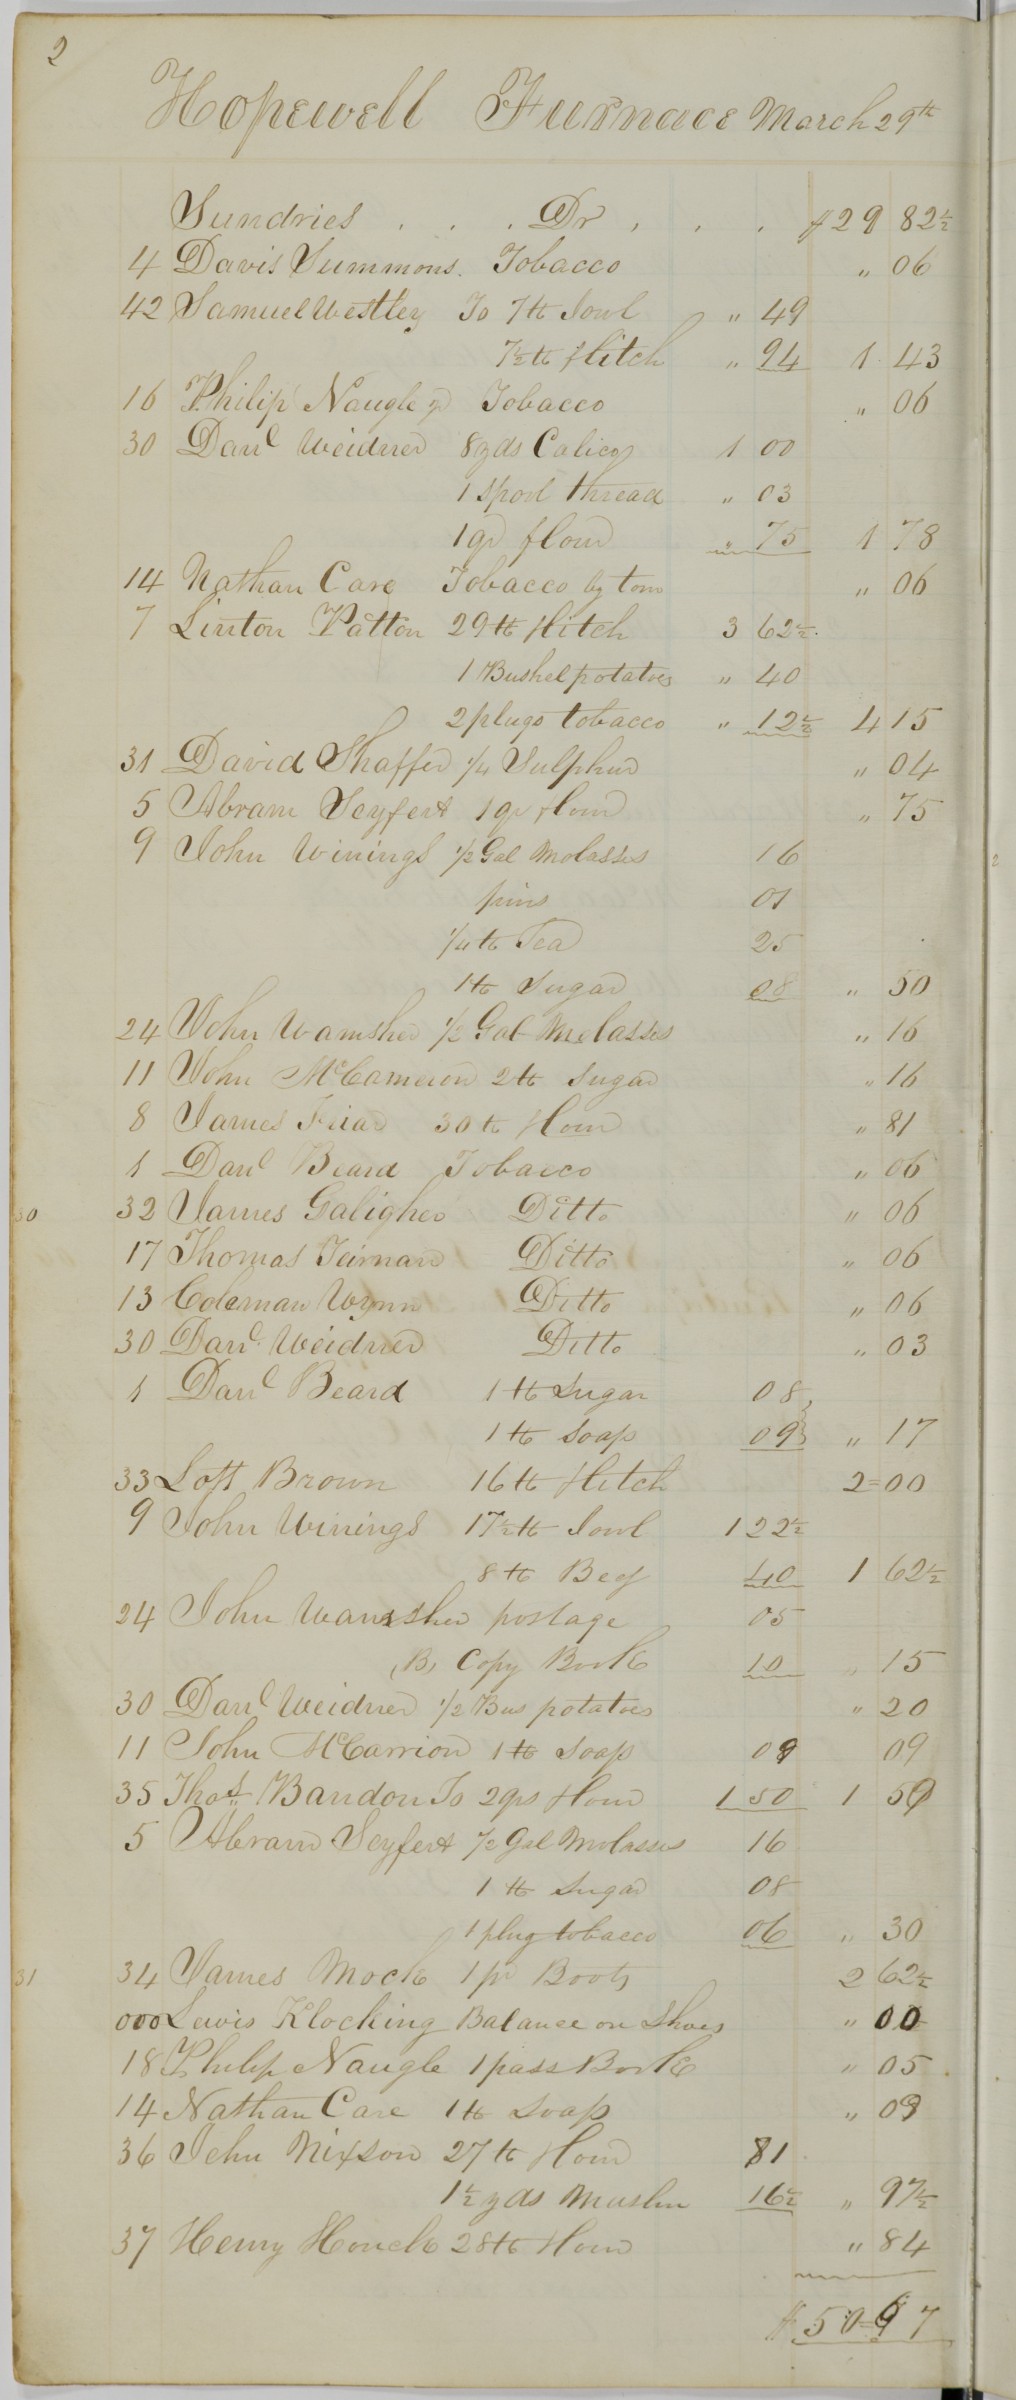 2
Hopewell Furnace March 29th
Sundries . . . Dr . . . $29 82½
4 Davis Summons. Tobacco " 06
42 Samuel Westley To 7 ℔ Jowl " 49
7½ ℔ flitch " 94 1 43
16 Philip Naugle jr Tobacco " 06
30 Danl Weidner 8 yds Calico 1 00
1 Spool thread " 03
1 qr flour " 75 1 78
14 Nathan Care Tobacco by tom " 06
7 Linton Patton 29 ℔ flitch 3 62½
1 Bushel potatoes " 40
2 plugs tobacco " 12½ 4 15
31 David Shaffer ¼ Sulphur " 04
5 Abram Seyfert 1 qr flour " 75
9 John Winings ½ Gal Molasses 16
pins 01
¼ ℔ Tea 25
1 ℔ Sugar 08 " 50
24 John Wamsher ½ Gal Molasses " 16
11 John McCameron 2 ℔ Sugar " 16
8 James Friar 30 ℔ flour " 81
1 Danl Beard Tobacco " 06
30 32 James Galigher Ditto " 06
17 Thomas Teirnan Ditto " 06
13 Coleman Wynn Ditto " 06
30 Danl Weidner Ditto " 03
1 Danl Beard 1 ℔ Sugar 08
1 ℔ Soap 09 " 17
33 Loft Brown 16 ℔ flitch 2=00
9 John Winings 17½ ℔ Jowl 1 22½
8 ℔ Beef 40 1 62½
24 John Wamsher postage 05
(B) Copy Book 10 " 15
30 Danl Weidner ½ Bus potatoes " 20
11 John McCarrion 1 ℔ Soap 09 09
35 Thos Bandon To 2 qrs flour 1 50 1 50
5 Abram Seyfert ½ Gal Molasses 16
1 ℔ Sugar 08
1 plug tobacco 06 " 30
31 34 James Mock 1 pr Boots 2 62½
000 Lewis Klocking Balance on Shoes " 00
18 Philip Naugle 1 pass Book " 05
14 Nathan Care 1 ℔ Soap " 09
36 John Nixson 27 ℔ flour 81
1½ yds Muslin 16½ " 97½
37 Henry Houck 28 ℔ flour " 84
$ 50=97